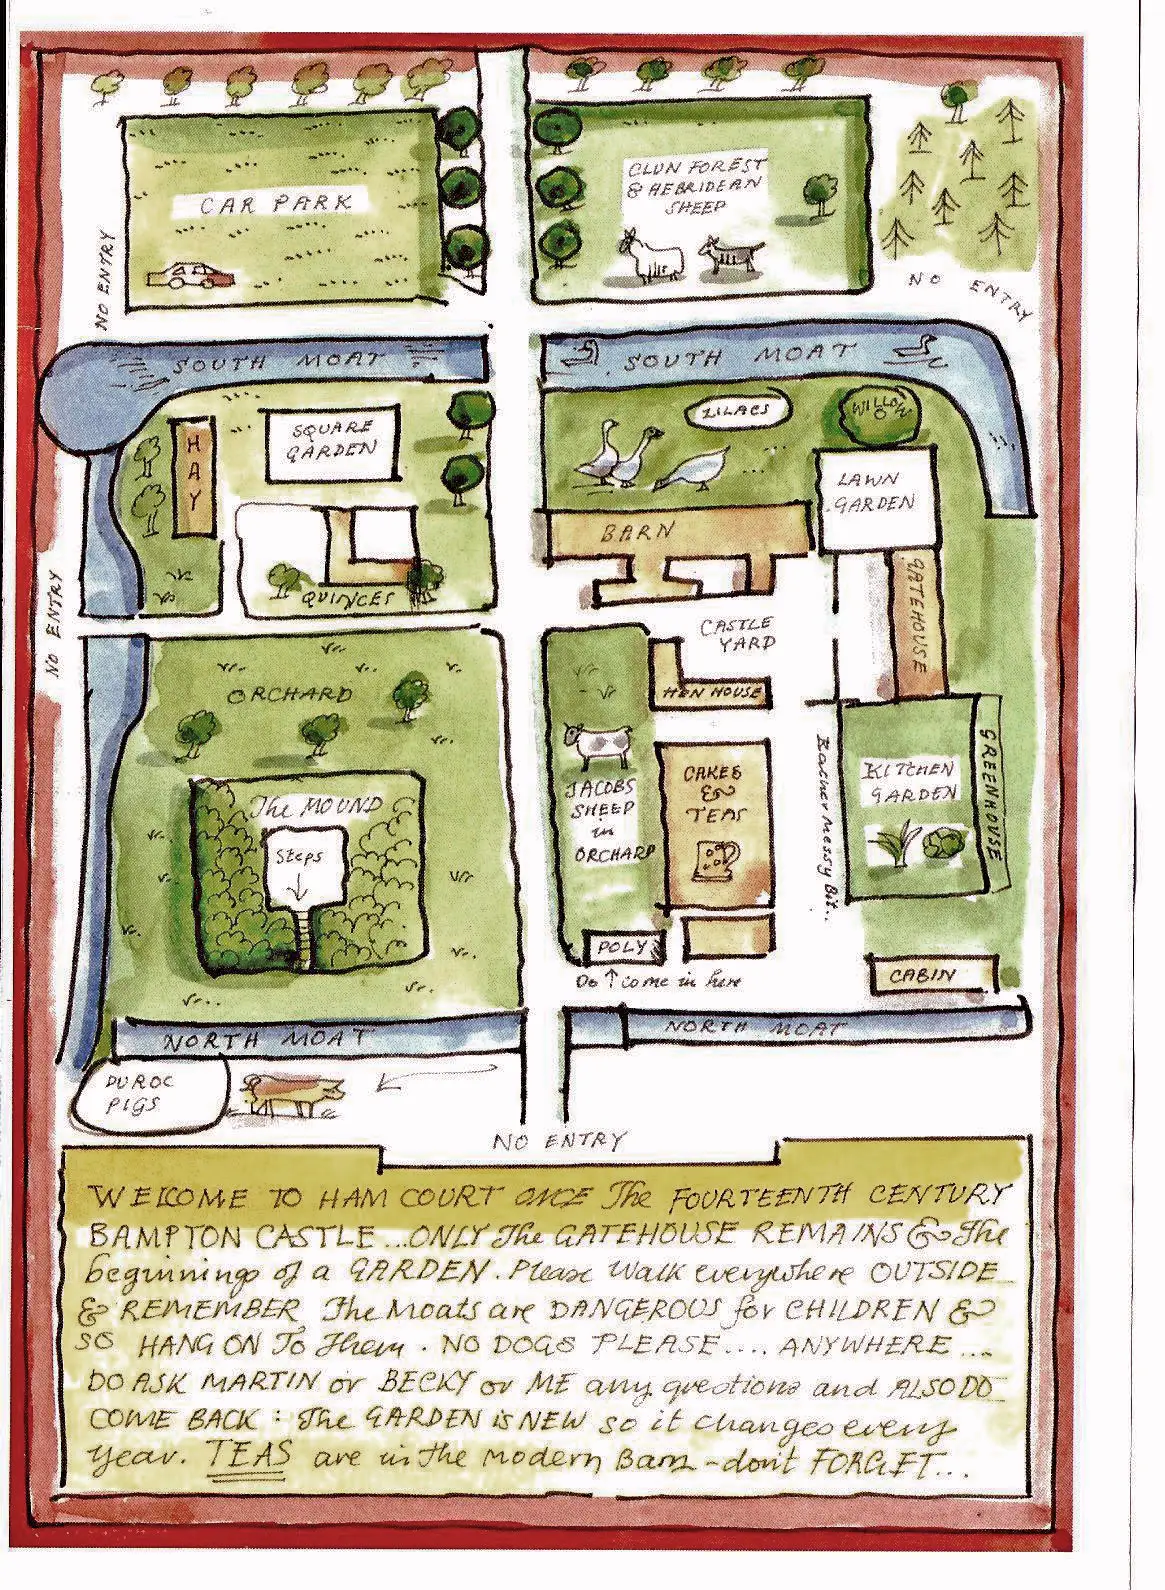 CAR PARK
CLUN FOREST
& HEBRIDEAN
SHEEP
NO ENTRY
NO ENTRY
SOUTH MOAT
SOUTH MOAT
HAY
SQUARE
GARDEN
LILACS
WILLOW
LAWN
GARDEN
BARN
QUINCES
NO ENTRY
CASTLE
YARD
GATEHOUSE
ORCHARD
HEN HOUSE
The MOUND
Steps
JACOBS
SHEEP
in
ORCHARD
CAKES
&
TEAS
Rather Messy Bit..
KITCHEN
GARDEN
GREENHOUSE
POLY
Do ↑ come in here
CABIN
NORTH MOAT
NORTH MOAT
DUROC
PIGS
NO ENTRY
WELCOME TO HAM COURT ONCE The FOURTEENTH CENTURY
BAMPTON CASTLE...ONLY The GATEHOUSE REMAINS & The
beginnings of a GARDEN. Please Walk everywhere OUTSIDE
& REMEMBER The Moats are DANGEROUS for CHILDREN &
SO HANG ON To Them. NO DOGS PLEASE.... ANYWHERE ...
DO ASK MARTIN or BECKY or ME any questions and ALSO DO
COME BACK : The GARDEN is NEW so it changes every
year. TEAS are in The modern Barn - don't FORGET...